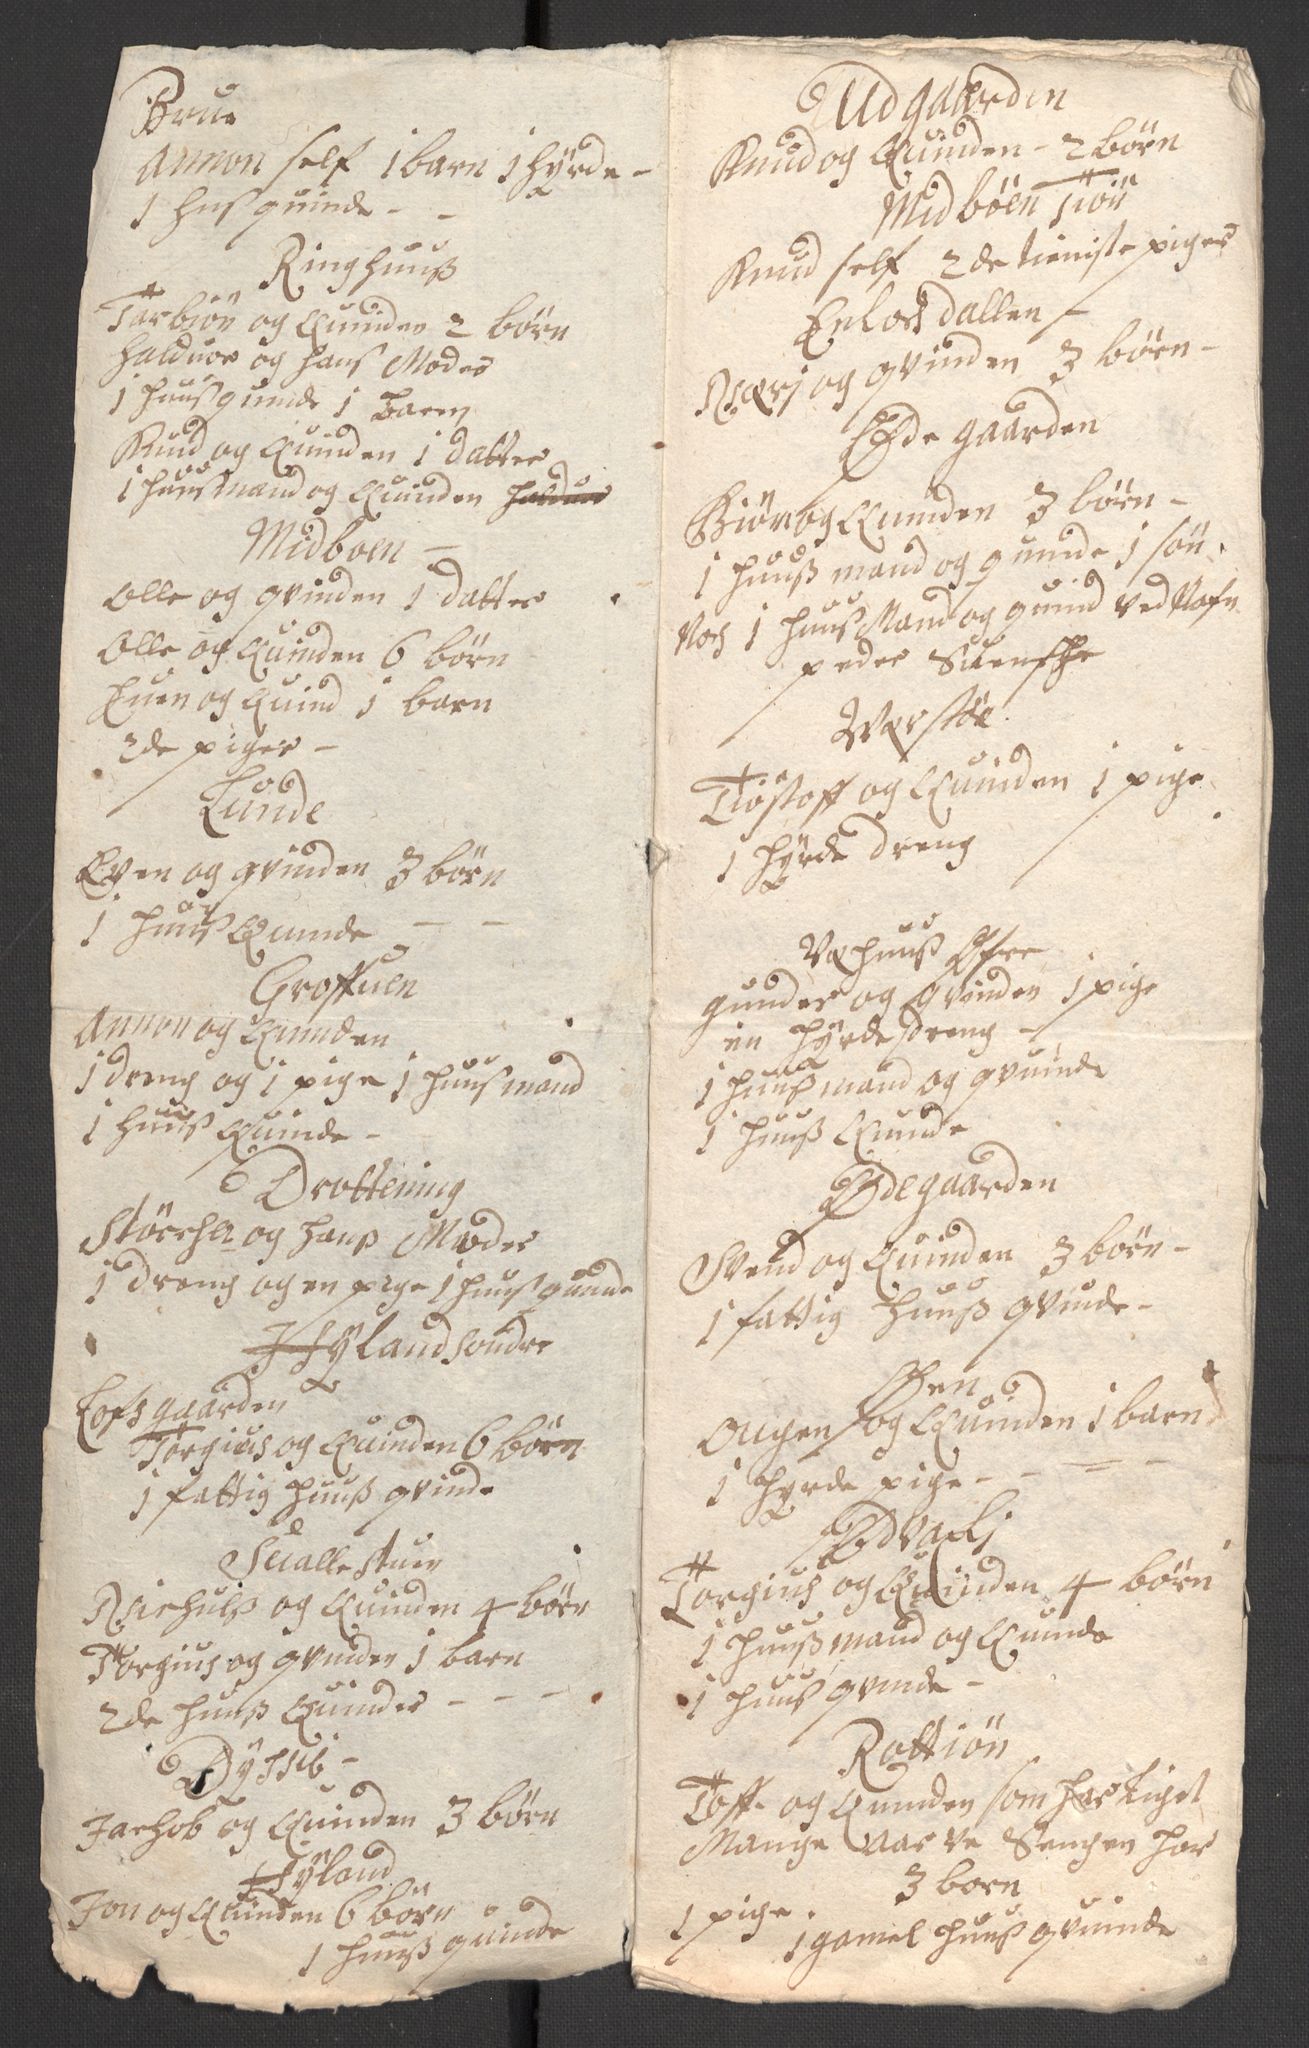 Brue
Amon self 1 barn 1 hyrde -
1 husquinde - -
Ringhuuß
Tarbiön og Quinden 2 börn
Halduor og hans Moder
1 huusquinde 1 Barn
Knud og Quinden 1 datter
1 huusmand og Quinden Halduor
Midboen -
Olle og qvinden 1 datter
Olle og Quinden 6 börn
Euen og Quind 1 barn
2de piger -
Lunde
Even og qvinden 3 börn
1 huus Quinde - -
Groffuen
Amon og Quinden
1 dreng og 1 pige 1 huusmand
1 huus Quinde -
Drottening
og hanß Moder
1 dreng og en pige 1 huusquinde
Hyland Söndre
Lofsgaarden
Torgius og Quinden 6 börn
1 fattig huuß qvinde
Suallestuen
og Quinden 4 börn
Torgius og qvinden 1 barn
2de huuß Quinder - - -
Jachob og Quinden 3 börn
Hyland
Jon og Quinden 6 börn
1 huuß quinde
Udgaarden
Knud og Quinden - 2 börn
Midböen
Knud self 2de tieniste piger
dallen -
og qvinden 3 börn -
Öde gaarden
Biörn og Quinden 3 börn -
1 huuß mand og quinde 1 sön
Noch 1 huus Mand og quind ved Nafn
peder Suenshe
Verstöe
Tiöstoff og Quinden 1 pige
1 hyrde dreng
Vehuuß Öfre
gunder og qvinden 1 pige
en hyrde dreng -
1 huuß mand og qvuinde
1 huuß Quinde
Ödegaarden
Svend og Quinden 3 börn -
1 fattig huuß qvinde -
Öen
Ougen og Quinden 1 barn
1 hyrde pige - - = -
Torgius og Quinden 4 börn
1 huuß mand og Quinde
1 huus qvinde -
Rottiön
Toff - og Quinden som har ligget
Mange Aar ve Sengen har
3 born
1 pige .
1 gamel huuß qvuinde